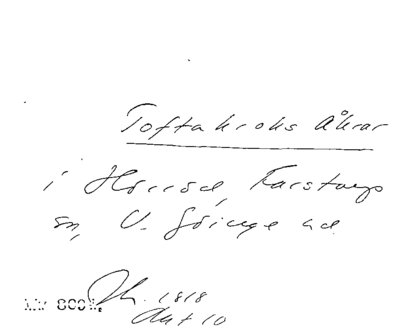 Toftakroks Åkrar
i Hörröd, Farstorps
sn, V. Göinge hd.
1818
Akt 10